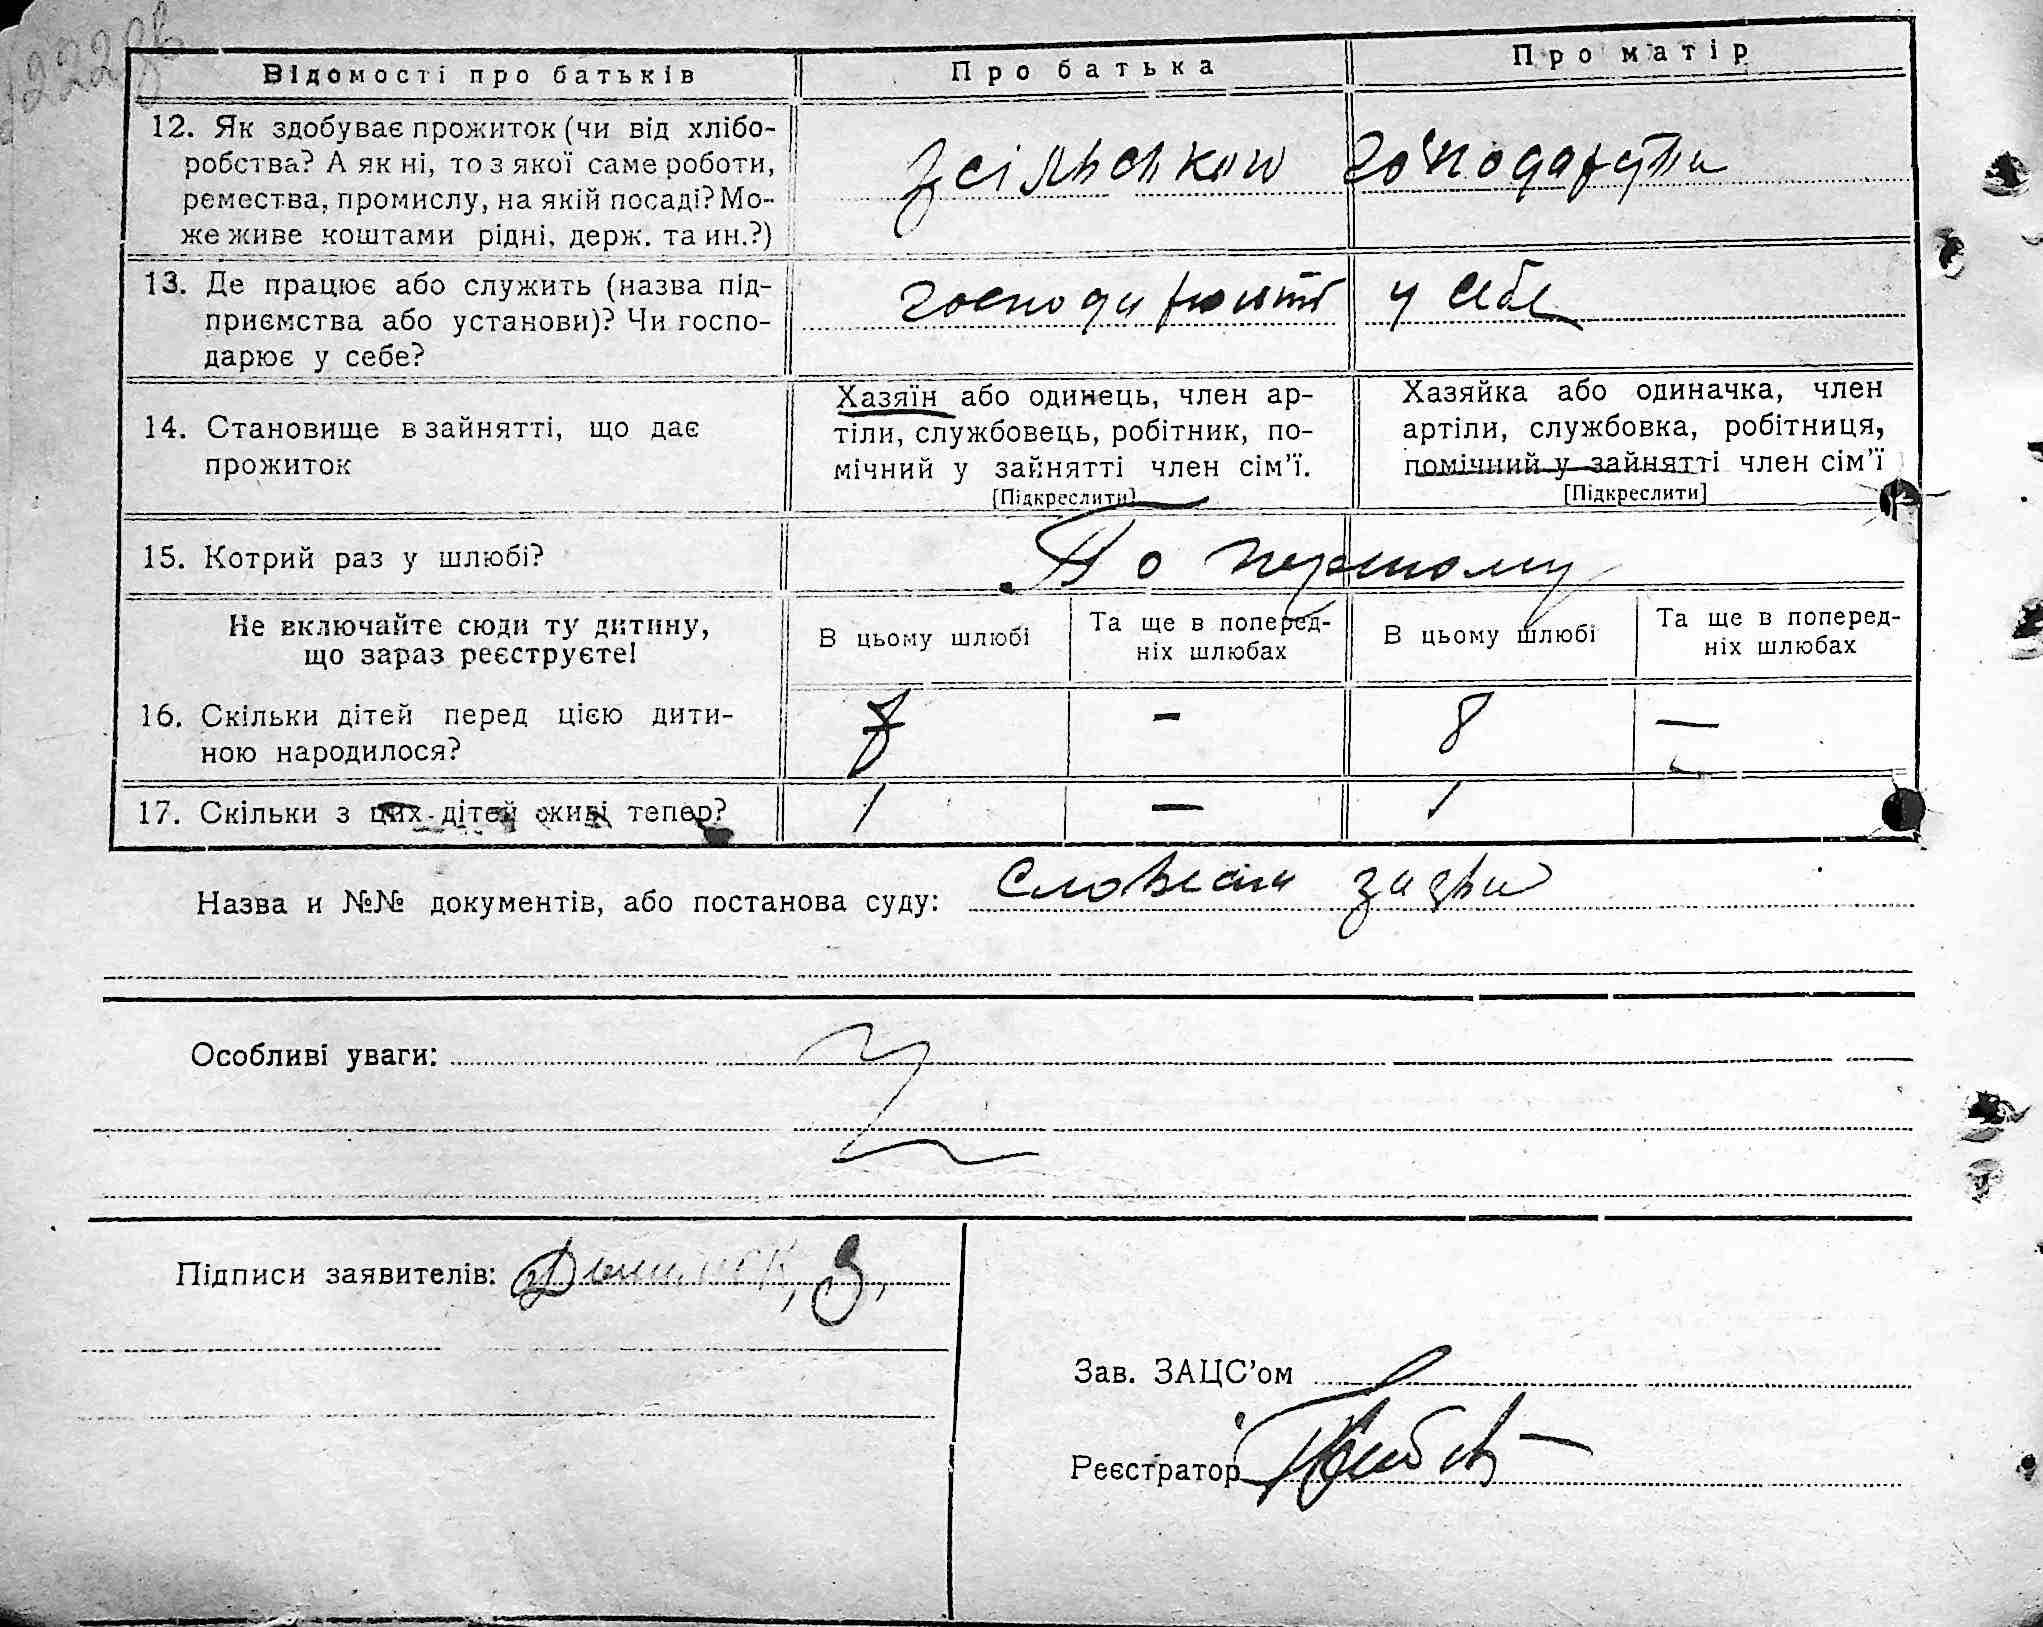 Відомості про батьків
Про батька
Про матір
12. Як здобуває прожиток (чи від хлібо-
робства? А як ні, то з якої саме роботи,
ремества, промислу, на якій посаді? Мо-
же живе коштами рідні, держ. та ин.?)
13. Де працює або служить (назва під-
приємства або установи)? Чи госпо-
дарює у себе?
у себе
14. Становище в зайнятті, що дає
прожиток
Хазяїн або одинець, член ар-
тіли, службовець, робітник, по-
мічний у зайнятті член сім’ї.
[Підкреслити]
Хазяйка або одиначка, член
артіли, службовка, робітниця,
помічний у зайнятті член сім’ї
[Підкреслити]
15. Котрий раз у шлюбі?
По першому
Не включайте сюди ту дитину,
що зараз реєструєте!
В цьому шлюбі
Та ще в поперед-
ніх шлюбах
В цьому шлюбі
Та ще в поперед-
ніх шлюбах
16. Скільки дітей перед цією дити-
ною народилося?
-
8
—
17. Скільки з цих дітей живі тепер?
1
—
1
Назва и №№ документів, або постанова суду:
Особливі уваги:
Підписи заявителів:
Зав. ЗАЦС’ом
Реєстратор